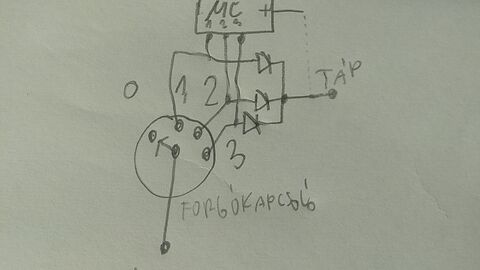 µC +
1 2 3
TÁP
0 1 2
3
FORGÓKAPCSOLÓ